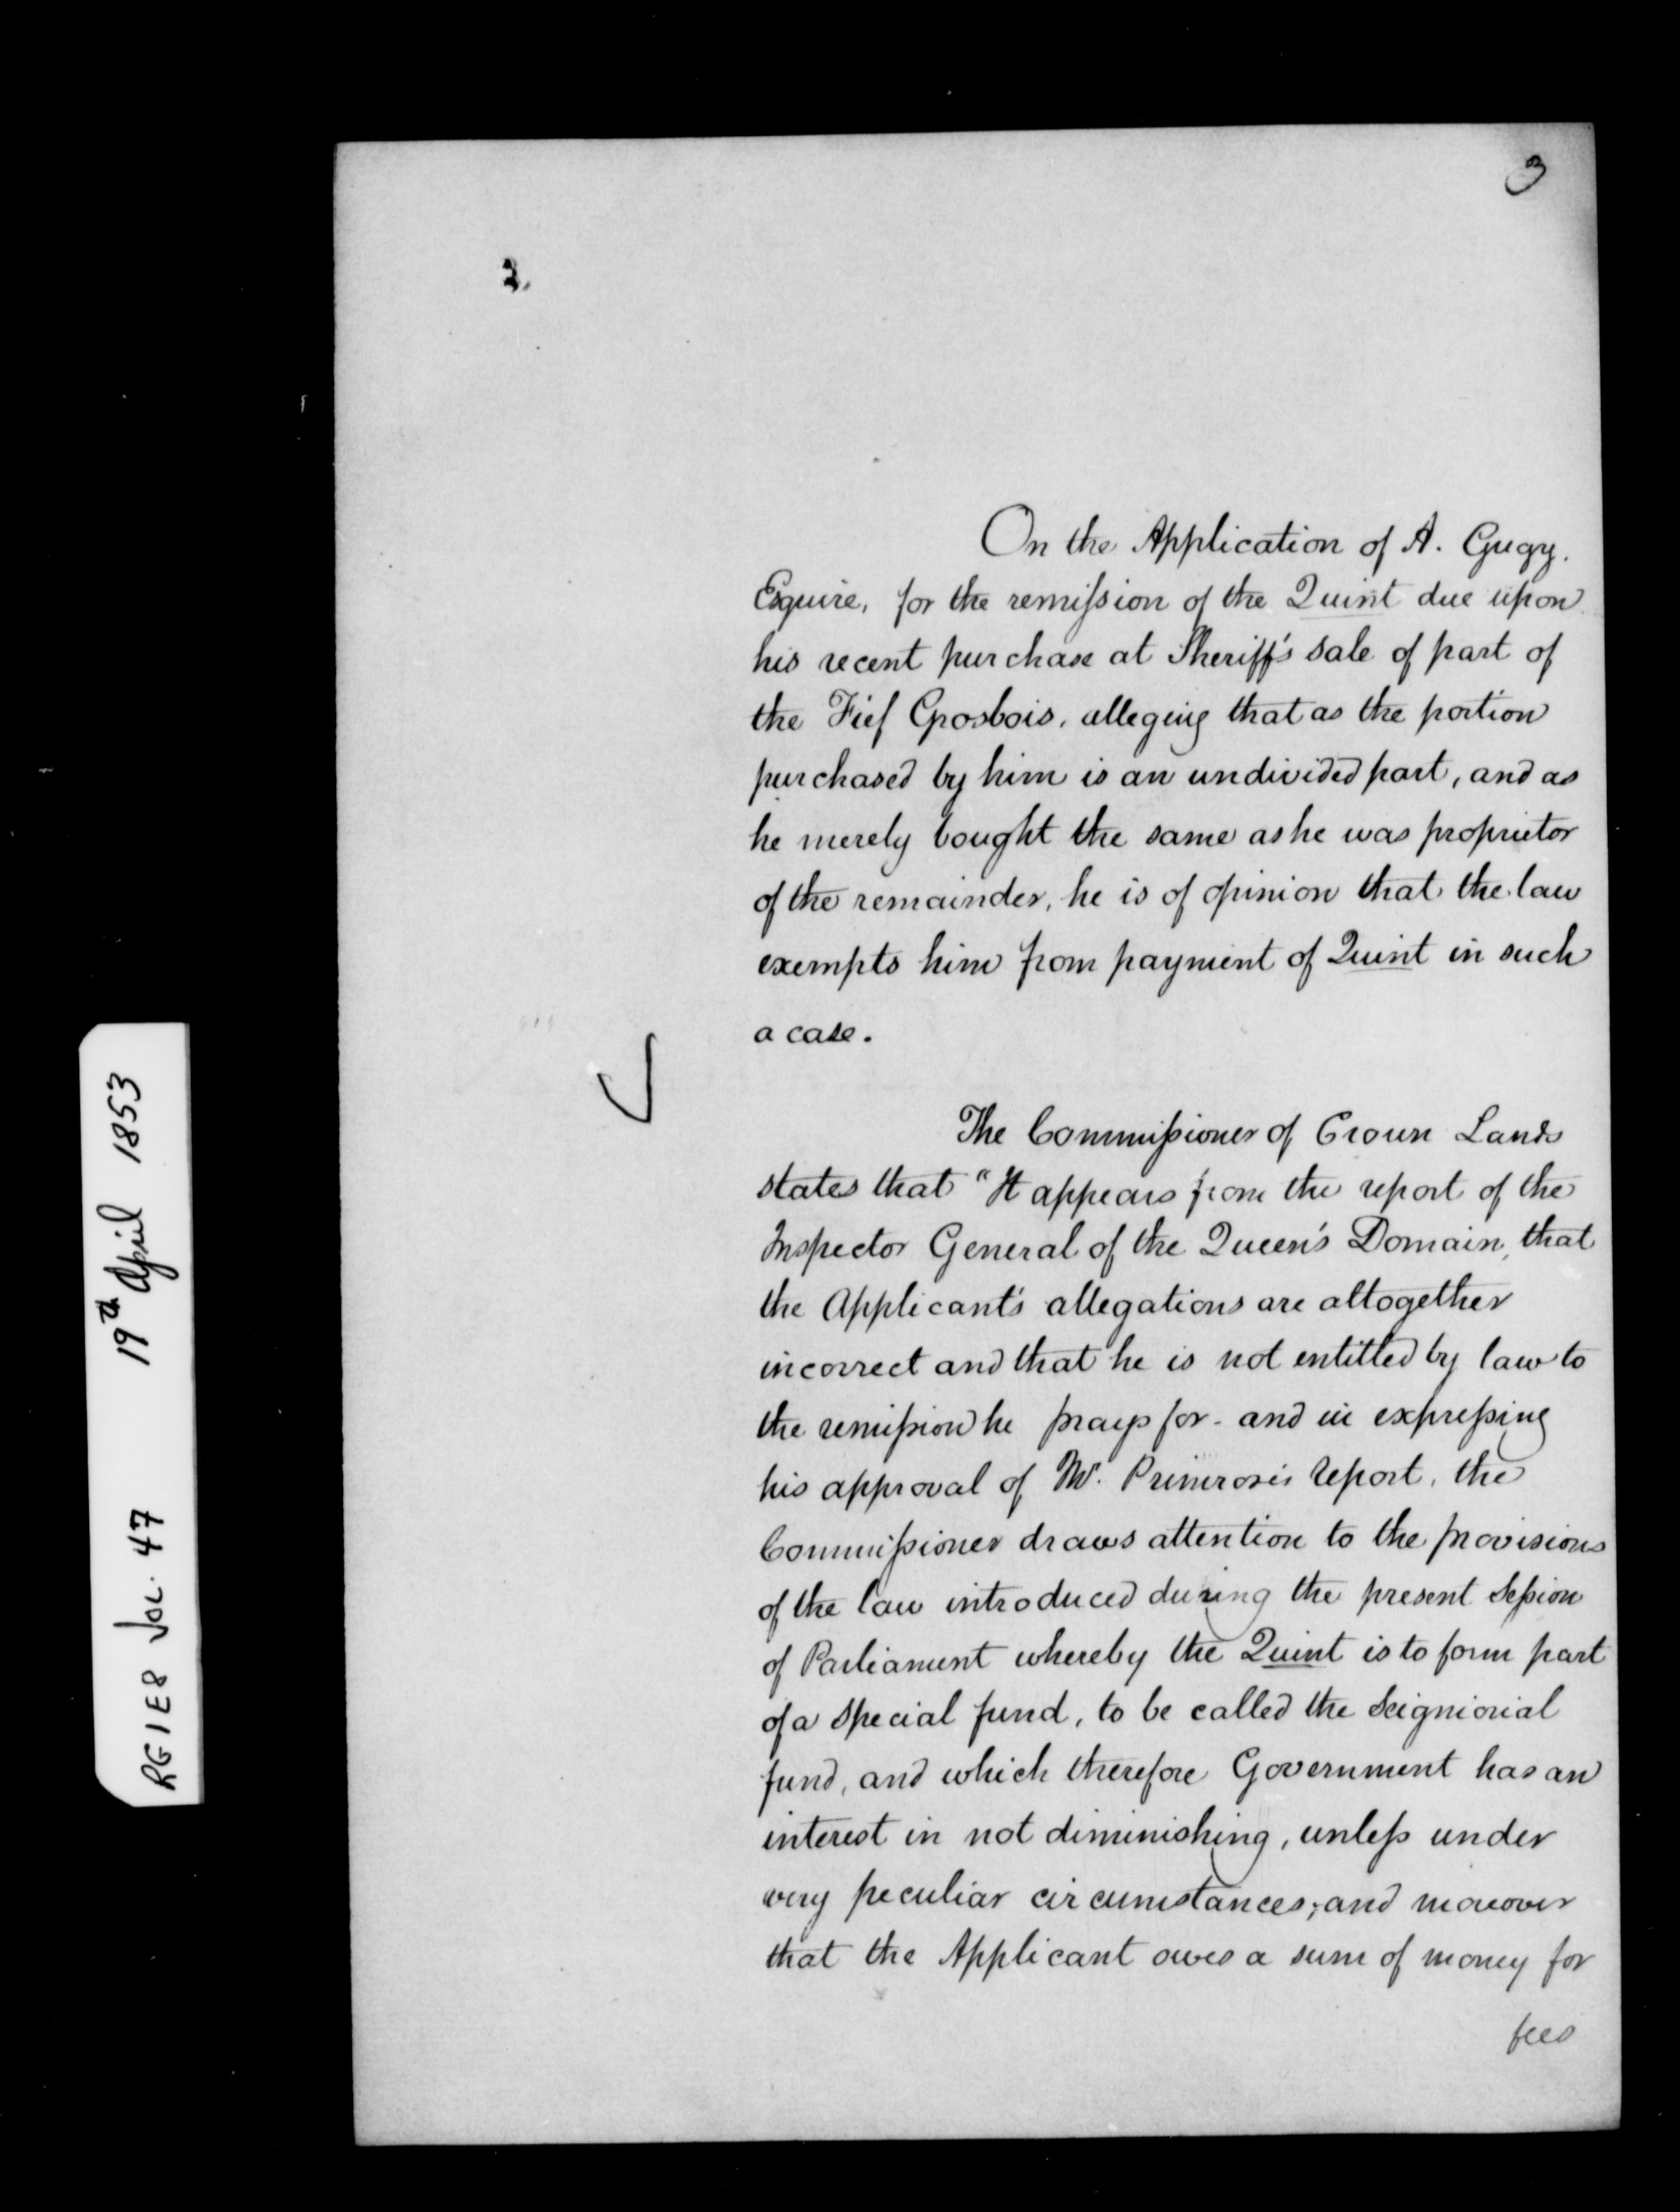 3
3.
On the Application of A. Gugy.
Esquire, for the remission of the Quint due upon
his recent purchase at Sheriff's sale of part of
the Fief Grosbois, alleging that as the portion
purchased by him is an undivided part, and as
he merely bought the same as he was proprietor
of the remainder, he is of opinion that the law
exempts him from payment of Quint in such
a case.
The Commissioner of Crown Lands
states that "It appears from the report of the
Inspector General of the Queen's Domain, that
the Applicant's allegations are altogether
incorrect and that he is not entitled by law to
the remission he prays for - and in expressing
his approval of Mr. Primrose's report, the
Commissioner draws attention to the provisions
of the law introduced during the present Session
of Parliament whereby the Quint is to form part
of a special fund, to be called the Seigniorial
fund, and which therefore Government has an
interest in not diminishing, unless under
very peculiar circumstances; and moreover
that the Applicant owes a sum of money for
fees
RG 1 E8 Vol. 47 19th April 1853